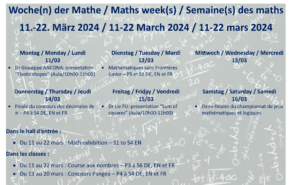 Woche(n) der Mathe / Maths week(s) / Semaine(s) des maths
11.-22. März 2024 / 11-22 March 2024 / 11-22 mars 2024
Montag / Monday / Lundi
11/03
Dr Giuseppe ANCONA: presentation
"Elastic shapes" (Aula/10h00-11h00)
Dienstag / Tuesday / Mardi
12/03
Mathématiques sans Frontières
Junior – P5 et S1 DE, EN et FR
Mittwoch / Wednesday / Mercredi
13/03
Donnerstag / Thursday / Jeudi
14/03
Finale du concours des décimales de
π – P3 à S6 DE, EN et FR
Freitag / Friday / Vendredi
15/03
Dr Lie FU: presentation "Sum of
squares" (Aula/10h00-11h00)
Samstag / Saturday / Samedi
16/03
Demi-finale du championnat de jeux
mathématiques et logiques
Dans le hall d'entrée :
Du 11 au 22 mars : Math exhibition – S1 to S4 EN
Dans les classes :
Du 11 au 22 mars : Course aux nombres – P3 à S6 DE, EN et FR
Du 11 au 20 mars : Concours Pangea – P4 à S4 DE, EN et FR